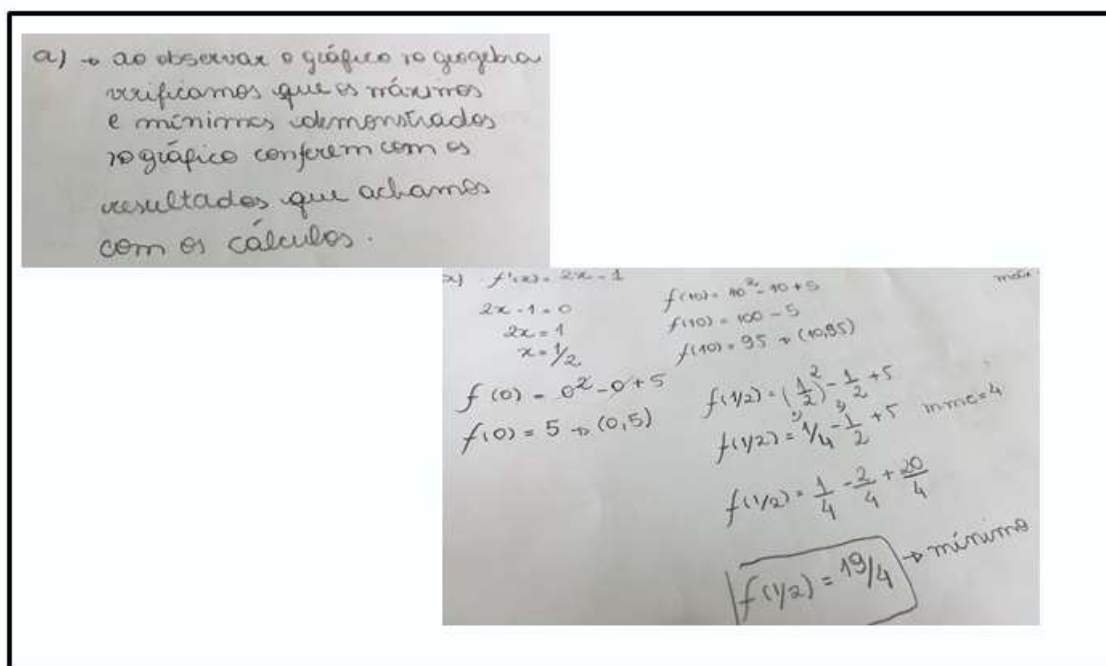 a) → ao observar o gráfico no geogebra
verificamos que os máximos
e mínimos demonstrados
no gráfico conferem com os
resultados que achamos
com os cálculos.
a) f'(x) = 2x - 1
2x - 1 = 0
2x = 1
x = 1/2
f(0) = 0² - 0 + 5
f(0) = 5 → (0,5)
f(10) = 10² - 10 + 5
f(10) = 100 - 5
f(10) = 95 → (10,95)
f(1/2) = (1/2)² - 1/2 + 5
f(1/2) = 1/4 - 1/2 + 5 mmc = 4
f(1/2) = 1/4 - 2/4 + 20/4
f(1/2) = 19/4 → mínimo